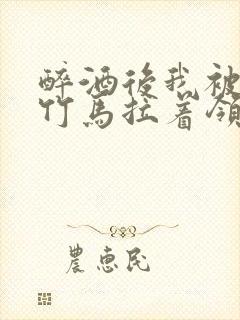 醉酒後我被
竹馬拉着領
農惠民